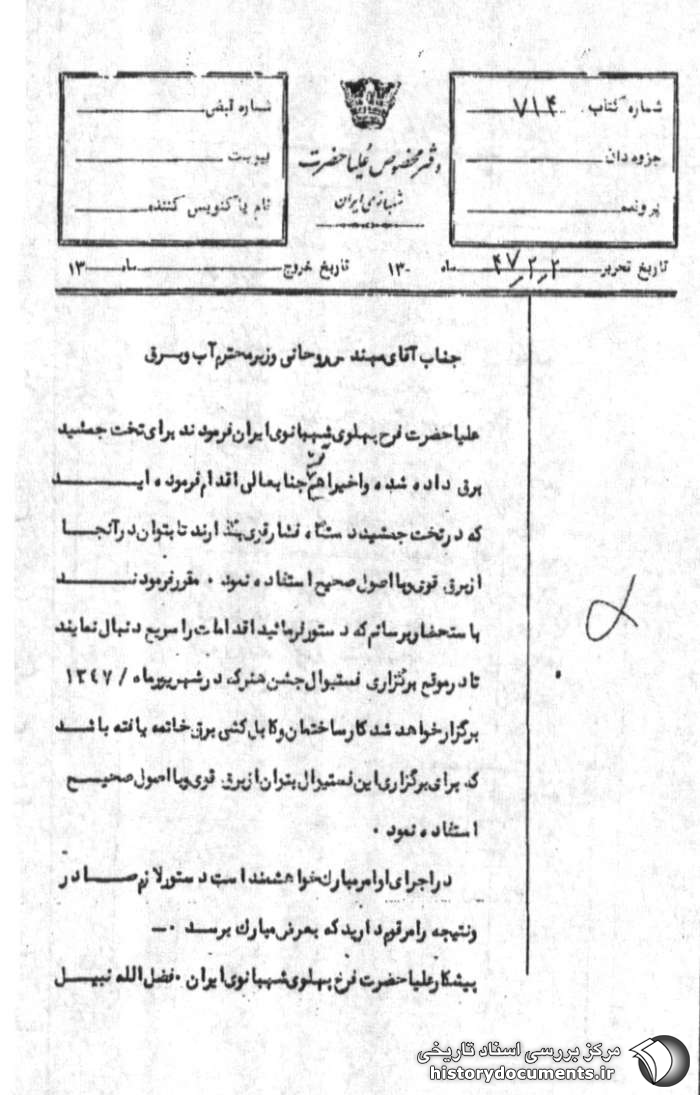 شماره کتاب ۷۱۴
جزوه‌دان
پرونده
دفتر مخصوص علیاحضرت
شهبانوی ایران
شماره قبضی
پیوست
نام پاکنویس کننده
تاریخ تحریر ۴۷٫۲٫۲ ماه ۱۳۰
تاریخ خروج ماه ۱۳
جناب آقای مهندس روحانی وزیر محترم آب و برق
علیاحضرت فرح پهلوی شهبانوی ایران فرمودند برای تخت جمشید
برق داده شده و اخیرا هم جنابعالی اقدام فرموده اید
که در تخت جمشید دستگاه فشار قوی بگذارند تا بتوان در آنجا
از برق قوی و با اصول صحیح استفاده نمود ۰ مقرر فرمودند
باستحضار برسانم که دستور فرمائید اقدامات را سریع دنبال نمایند
تا در موقع برگزاری فستیوال جشن هنر که در شهریور ماه / ۱۳٤۷
برگزار خواهد شد کار ساختمان و کابل کشی برق خاتمه یافته باشد
که برای برگزاری این فستیوال بتوان از برق قوی و با اصول صحیح
استفاده نمود ۰
در اجرای اوامر مبارک خواهشمند است دستور لازم صادر
و نتیجه را مرقوم دارید که بعرض مبارک برسد ۰ـ
پیشکار علیاحضرت فرح پهلوی شهبانوی ایران ۰ فضل الله نبیل
مرکز بررسی اسناد تاریخی
historydocuments.ir